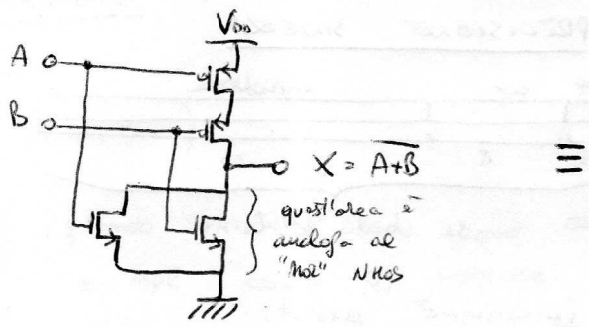 VDD
A
B
X = A+B
≡
quest'area è
analoga al
"NOR" NMOS